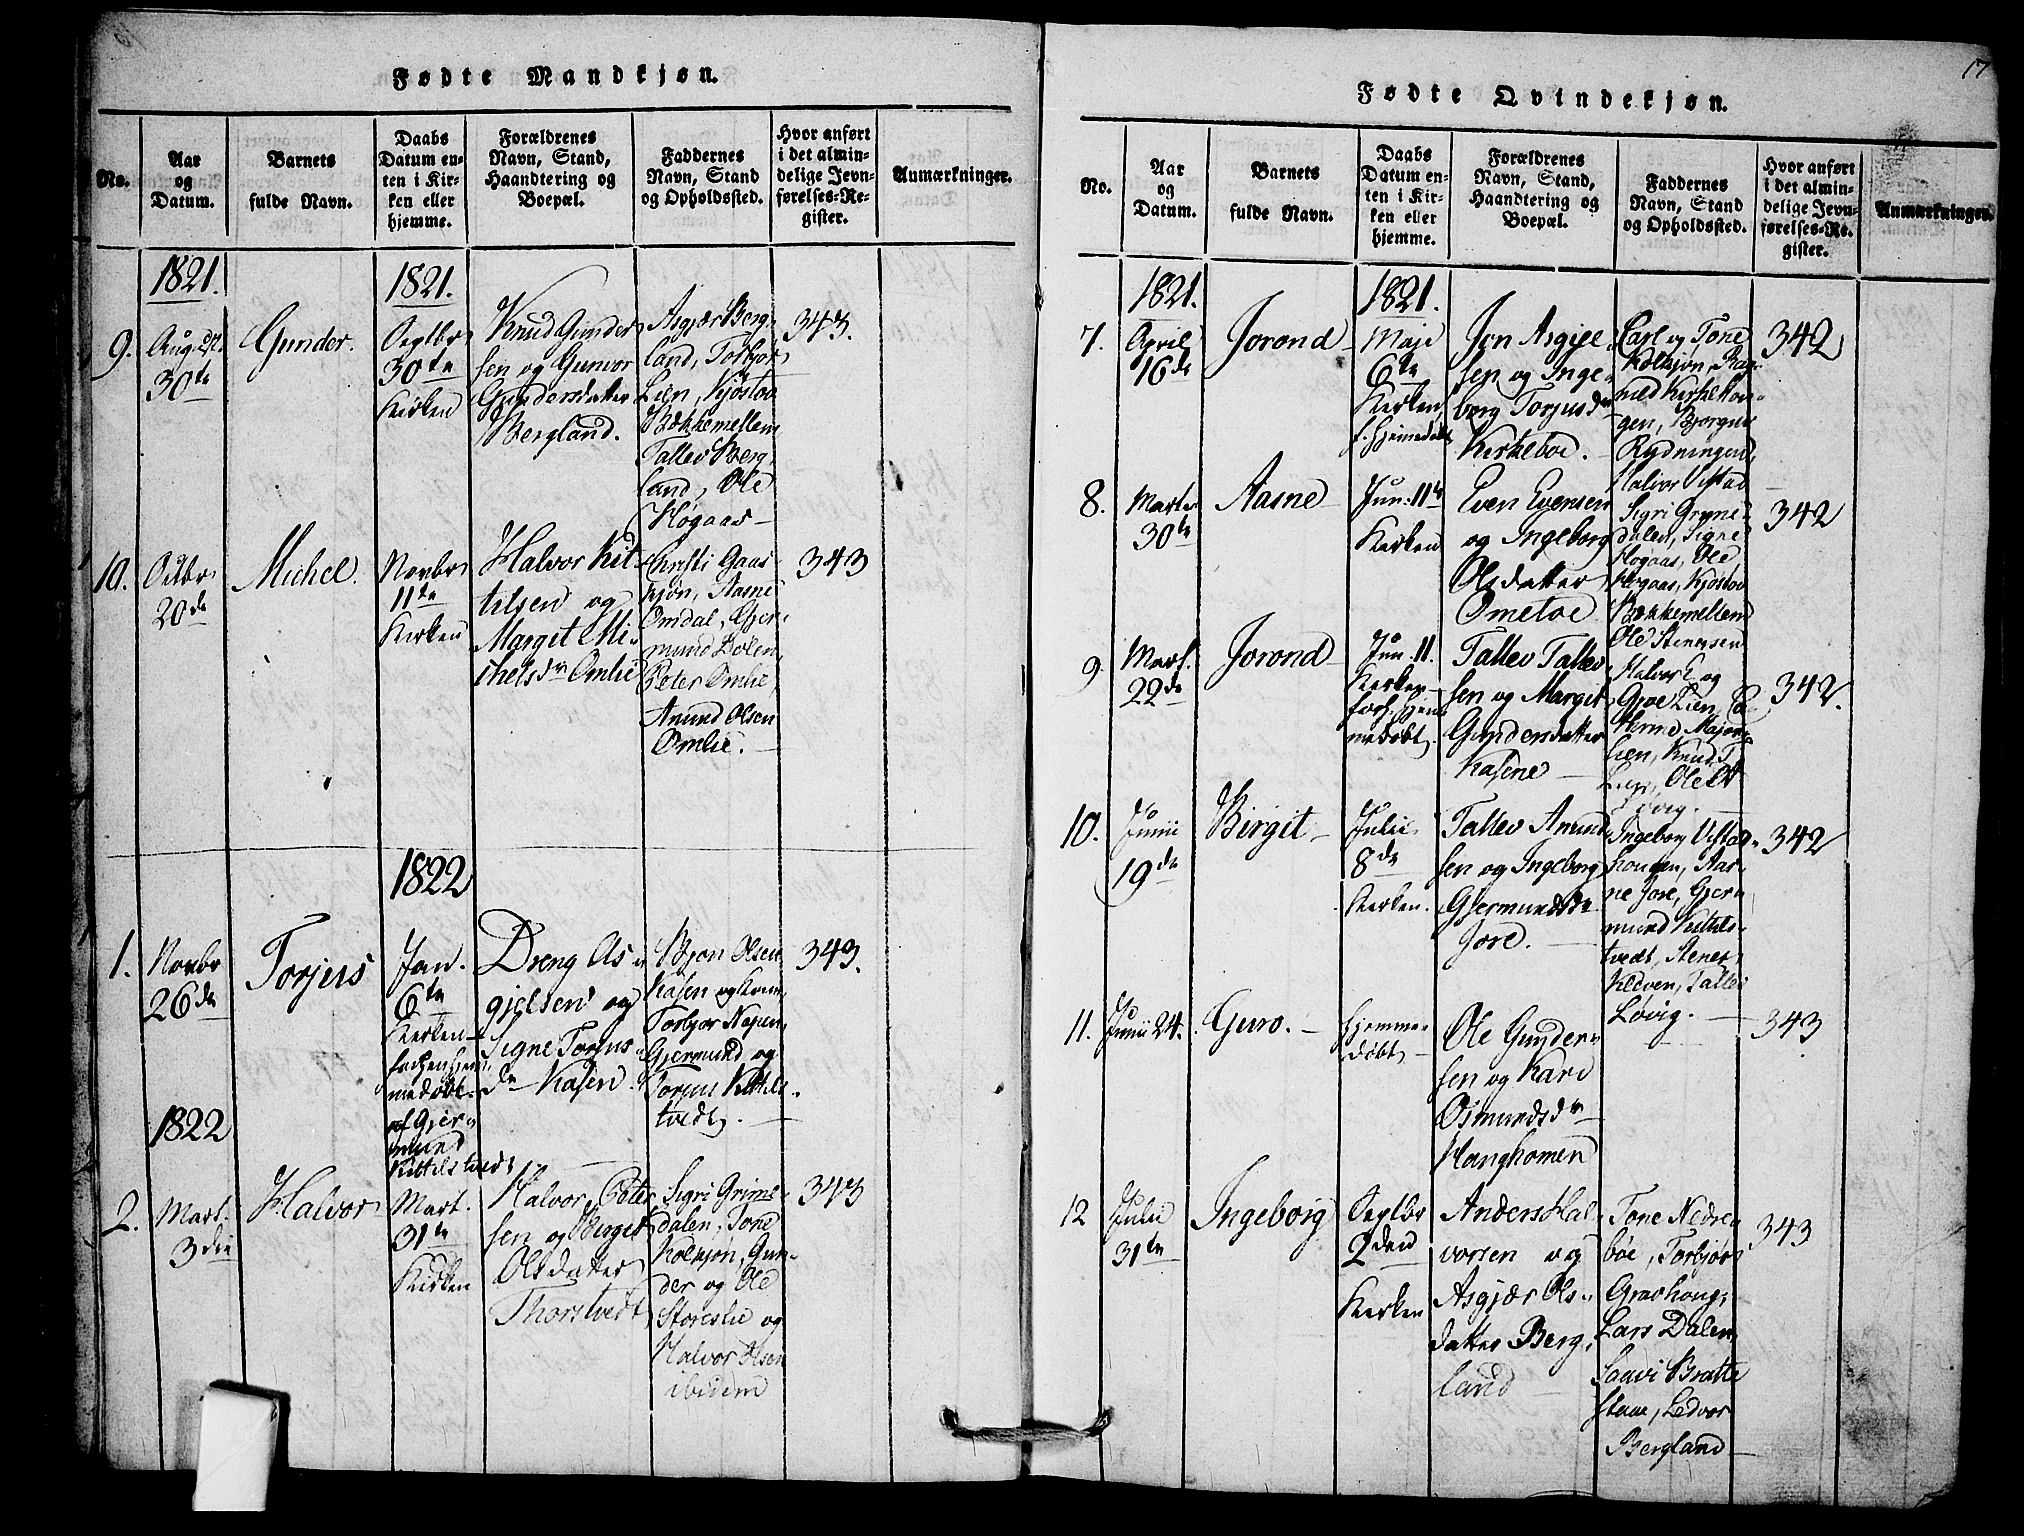 Fødte Mandkjøn.
No.
Aar
og
Datum.
Barnets
fulde Navn.
Daabs
Datum en-
ten i Kir-
ken eller
hjemme.
Forældrenes
Navn, Stand,
Haandtering og
Boepæl.
Faddernes
Navn, Stand
og Opholdssted.
Hvor anført
i det almin-
delige Jevn-
førelses-Re-
gister.
Anmærkninger.
1821.
9.
Aug.
30te
Gunder.
1821.
Septbr
30te
Kirken
Knud Gunder
sen og Gunvor
Gundersdatter
Bergland.
Asgjær Berg-
land, Torbjør
Lien, Kjøstov
Bækkemellem
Tallev Berg
land, Ole
Høgaas
343.
10.
Octbr
20de
Michel.
Novbr
11te
Kirken
Halvor Kit-
tilsen og
Margit Mi-
chelsdr Omlie
Christi Gaas-
kjøn, Aasne
Omdal, Gjer-
mund Dolen,
Peter Omlie,
Anund Olsen
Omlie.
343
1822
1.
Novbr
26de
Torjus
Jan.
6te
Kirken
forhen hjem
medøbt
af Gjer-
mund
Kittilstvedt
Dreng As-
gjelsen og
Signe Torjus
dr Kasen.
Bjøn Olsen
Kasen og Kone,
Torbjør Nepen,
Gjermund og
Torjus Kittils-
tvedt.
343.
1822
2.
Mart.
3die
Halvor
Mart.
31te
Kirken
Halvor Peter
sen og Berget
Olsdatter
Thorstvedt
Sigri Grims-
dalen, Tone
Kolkjøn, Gun-
der og Ole
Storeslie og
Halvor Olsen
ibidem
343
17
Fødte Qvindekjøn.
No.
Aar
og
Datum.
Barnets
fulde Navn.
Daabs
Datum en-
ten i Kir-
ken eller
hjemme.
Forældrenes
Navn, Stand,
Haandtering og
Boepæl.
Faddernes
Navn, Stand
og Opholdssted.
Hvor anført
i det almin-
delige Jevn-
førelses-Re-
gister.
Anmærkninger.
1821.
7.
April
16de
Jorond
1821.
Maji
6te
Kirken,
f. hjemedøbt
Jon Asgjel
sen og Inge-
borg Torjusdr
Kirkeboe.
Carl og Tone
Kolkjøn, Rag-
nild Kirkekon-
gen, Bjorgu
Rydningen,
Halvor Vistad
342
8.
Marts
30te
Aasne
Jun. 11te
Kirken
Even Evensen
og Ingeborg
Olsdatter
Ometoe
Sigri Grimes-
dalen, Signe
Høgaas, Ole
Høgaas, Kjøstov
Bækkemellem
Ole Stenersen
342
9
Mart.
22de
Jorond
Jun. 11.
Kirken
forh. hjem-
medøbt.
Tallev Tallev
sen og Margit
Gundersdatter
Kasene
Halvor E og
Gjoe Lien,
Major-
lien, Knud T
Lien, Ole
Løvig.
342.
10.
Junii
19de
Birgit
Julii
8de
Kirken.
Tallev Anund
sen og Ingeborg
Gjermundsdr
Jore.
Ingeborg Vistog-
hougen, Aas-
ne Jore, Gjer-
mund Kittils-
tvedt, Stener
Kleven, Tallev
Løvig.
342
11.
Junii 24.
Guro.
hjemme-
døbt
Ole Gunder
sen og Kari
Osmundsdr
Hanghomen
343
12
Julii
31te
Ingeborg
Septbr
2den
Kirken
Anders Hal-
vorsen og
Asgjær Ols-
datter Berg-
land
Tone Nedre
bøe, Torbjør
Graahoug,
Lars Dalen,
Saavi Bratte
staae, Ledvor
Bergland
343